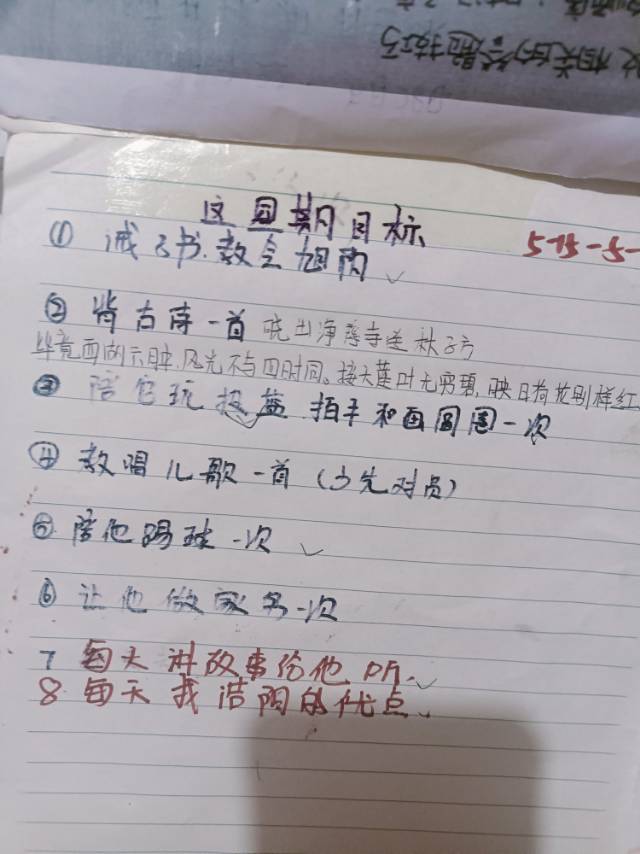 及相关的答题技巧
这周期目标
5-15-5-
① 诫子书.教会旭阳
② 背古诗一首 晓出净慈寺送林子方
毕竟西湖六月中,风光不与四时同。接天莲叶无穷碧,映日荷花别样红
③ 陪它玩 拍手和画圆圈一次
④ 教唱儿歌一首(少先对员)
⑤ 陪他踢球一次
⑥ 让他做家务一次
7 每天讲故事给他听.
8 每天找浩阳的优点.